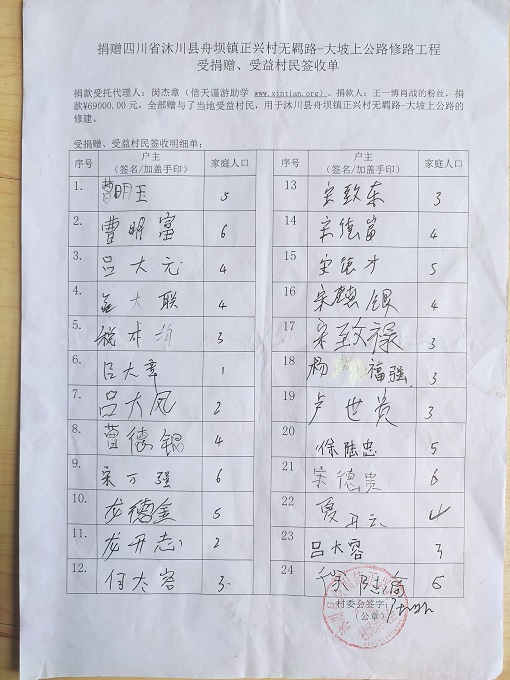 捐赠四川省沐川县舟坝镇正兴村无羁路-大坡上公路修路工程
受捐赠、受益村民签收单
捐款受托代理人：闵杰章（信天谨游助学 www.xintian.org），捐款人：王一博肖战的粉丝，捐
款¥69000.00 元，全部赠与了当地受益村民，用于沐川县舟坝镇正兴村无羁路-大坡上公路的
修建。
受捐赠、受益村民签收明细单：
序号 户主（签名/加盖手印） 家庭人口 序号 户主（签名/加盖手印） 家庭人口
1. 曹明玉 5 13 宋致东 3
2. 曹明富 6 14 宋德富 4
3. 吕大元 4 15 宋德才 5
4. 大联 4 16 宋德银 4
5. 税术 3 17 宋致禄 3
6. 吕大章 1 18 杨福强 3
7. 吕大凤 2 19 卢世贵 3
8. 曹德锟 4 20 徐陆忠 5
9. 宋万强 6 21 宋德贵 6
10. 龙德金 5 22 夏开云 4
11. 龙开志 2 23 吕大容 3
12. 任大容 3 24 陆 6
村委会签字：
（公章）